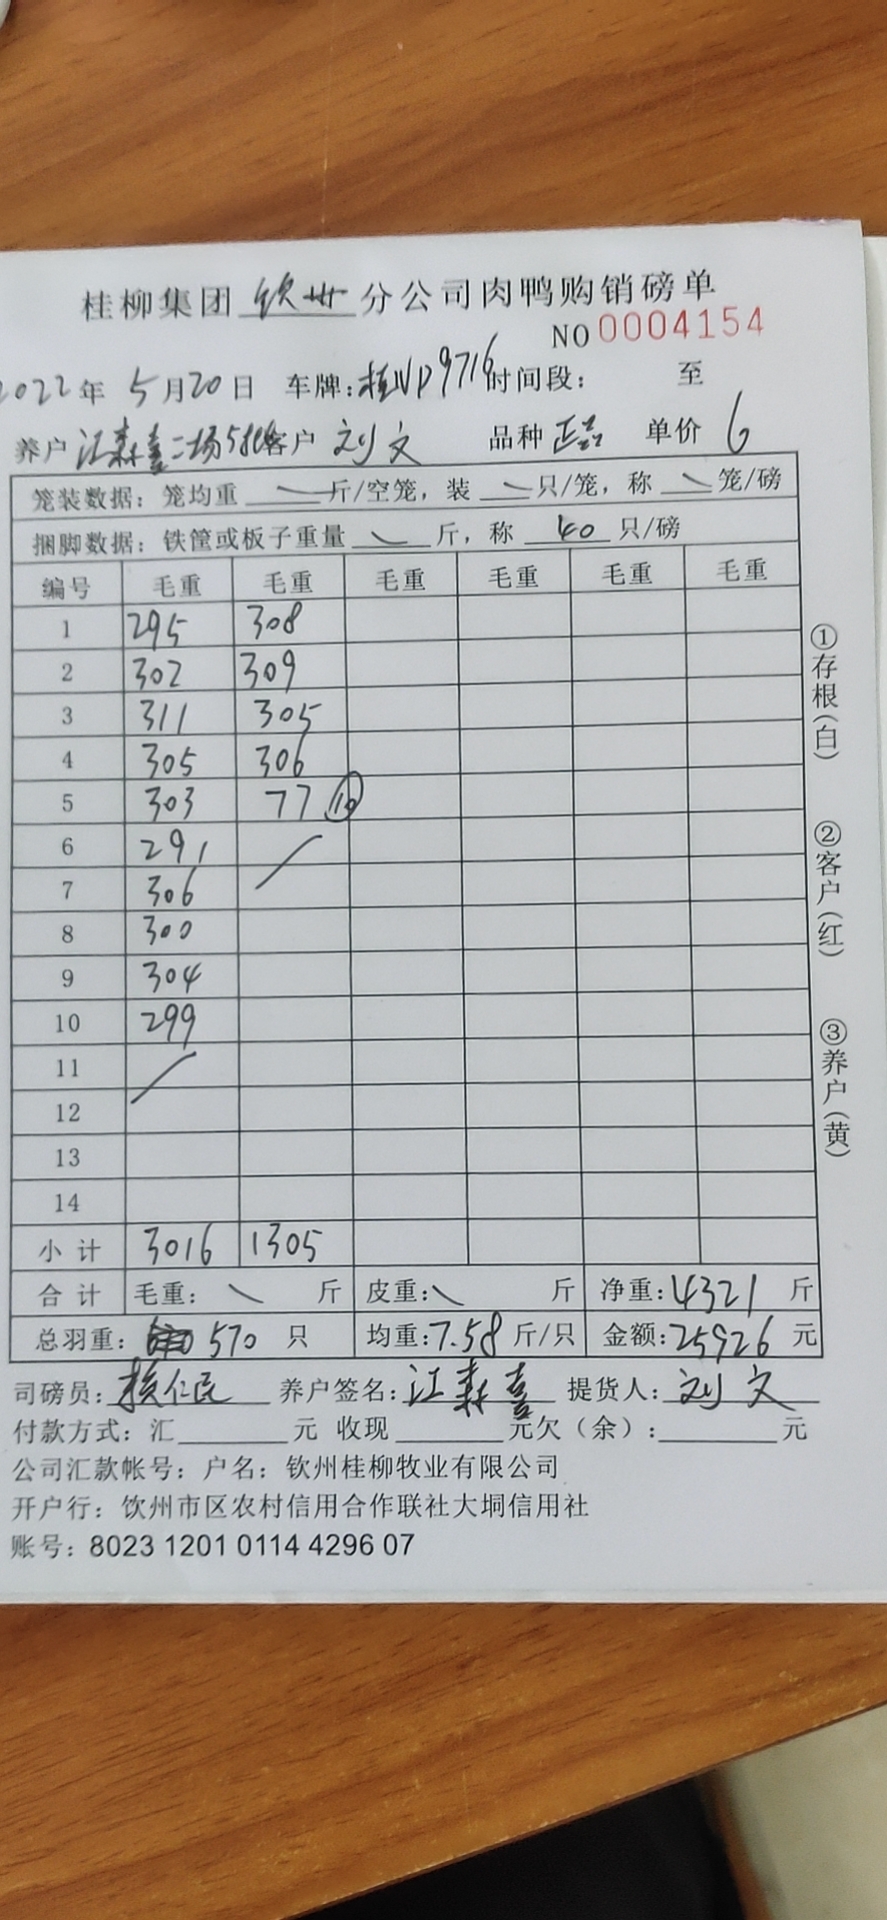 桂柳集团 钦州 分公司肉鸭购销磅单
NO 0004154
2022年 5月20日 车牌:桂ND9716 时间段: 至
养户 江森喜二场58批 客户 刘文 品种 正品 单价 6
笼装数据: 笼均重 \ 斤/空笼, 装 \ 只/笼, 称 \ 笼/磅
捆脚数据: 铁筐或板子重量 \ 斤, 称 40 只/磅
编号 毛重 毛重 毛重 毛重 毛重 毛重
1 295 308
2 302 309
3 311 305
4 305 306
5 303 77 ⑩
6 291
7 306
8 300
9 304
10 299
11
12
13
14
小计 3016 1305
合计 毛重: \ 斤 皮重: \ 斤 净重: 4321 斤
总羽重: 570 只 均重: 7.58 斤/只 金额: 25926 元
司磅员: 仁民 养户签名: 江森喜 提货人: 刘文
付款方式: 汇 元 收现 元欠(余): 元
公司汇款帐号: 户名: 钦州桂柳牧业有限公司
开户行: 饮州市区农村信用合作联社大垌信用社
账号: 8023 1201 0114 4296 07
①存根(白)
②客户(红)
③养户(黄)